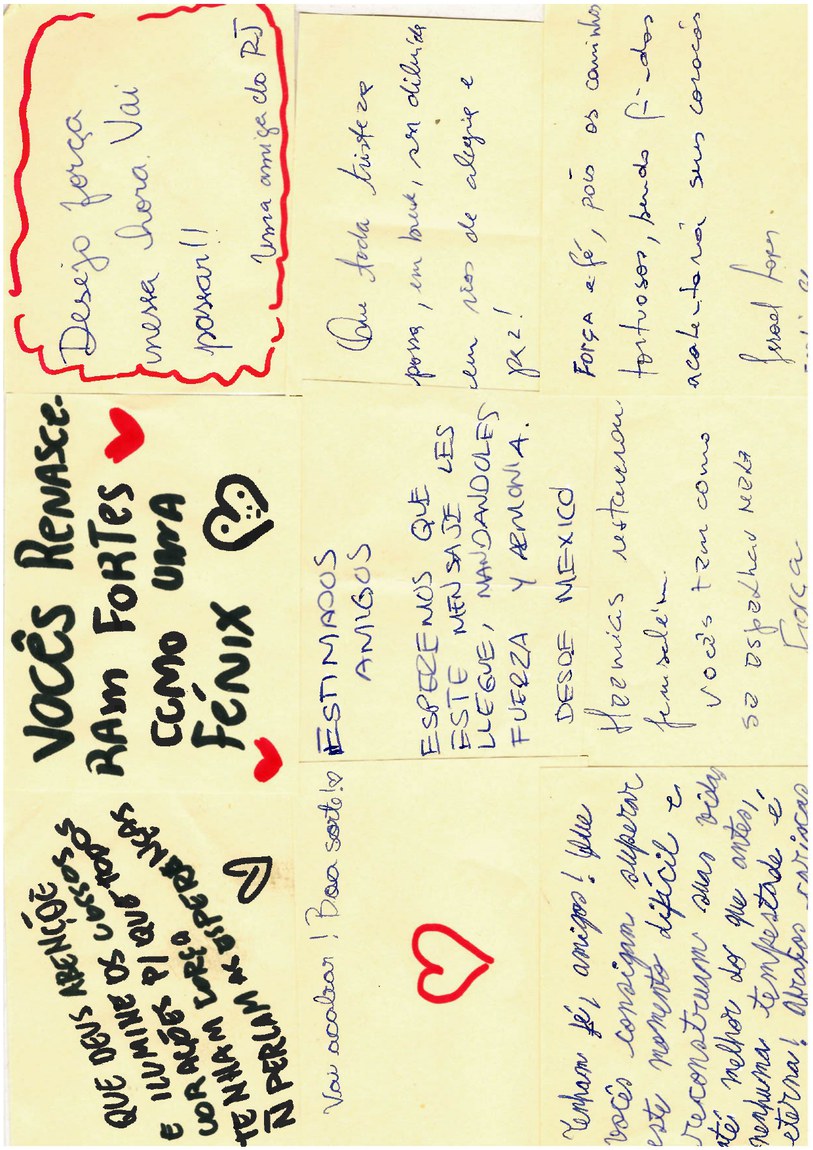 QUE DEUS ABENÇÕE
E ILUMINE OS VOSSOS
CORAÇÕES P/ QUE TODOS
TENHAM FORÇA
Ñ PERCAM AS ESPERANÇAS
VOCÊS RENASCE-
RAM FORTES
COMO UMA
FÊNIX
Desejo força
nessa hora. Vai
passar!!
Uma amiga do RJ
Vai acabar! Boa sorte!
ESTIMADOS
AMIGOS
ESPEREMOS QUE
ESTE MENSAJE LES
LLEGUE, MANDANDOLES
FUERZA Y ARMONIA.
DESDE MEXICO
Que toda tristeza
possa, em breve, ser diluída
em rios de alegria e
paz!
Tenham fé, amigos! Que
vocês consigam superar
este momento difícil e
reconstruam suas vidas
até melhor do que antes,
nenhuma tempestade é
eterna! Abraços cariocas
restaurou
Jerusalém.
Vocês tem como
se espelhar nela
Força
FORÇA e fé, pois os caminhos
tortuosos, sendo findos
acalentará seus corações